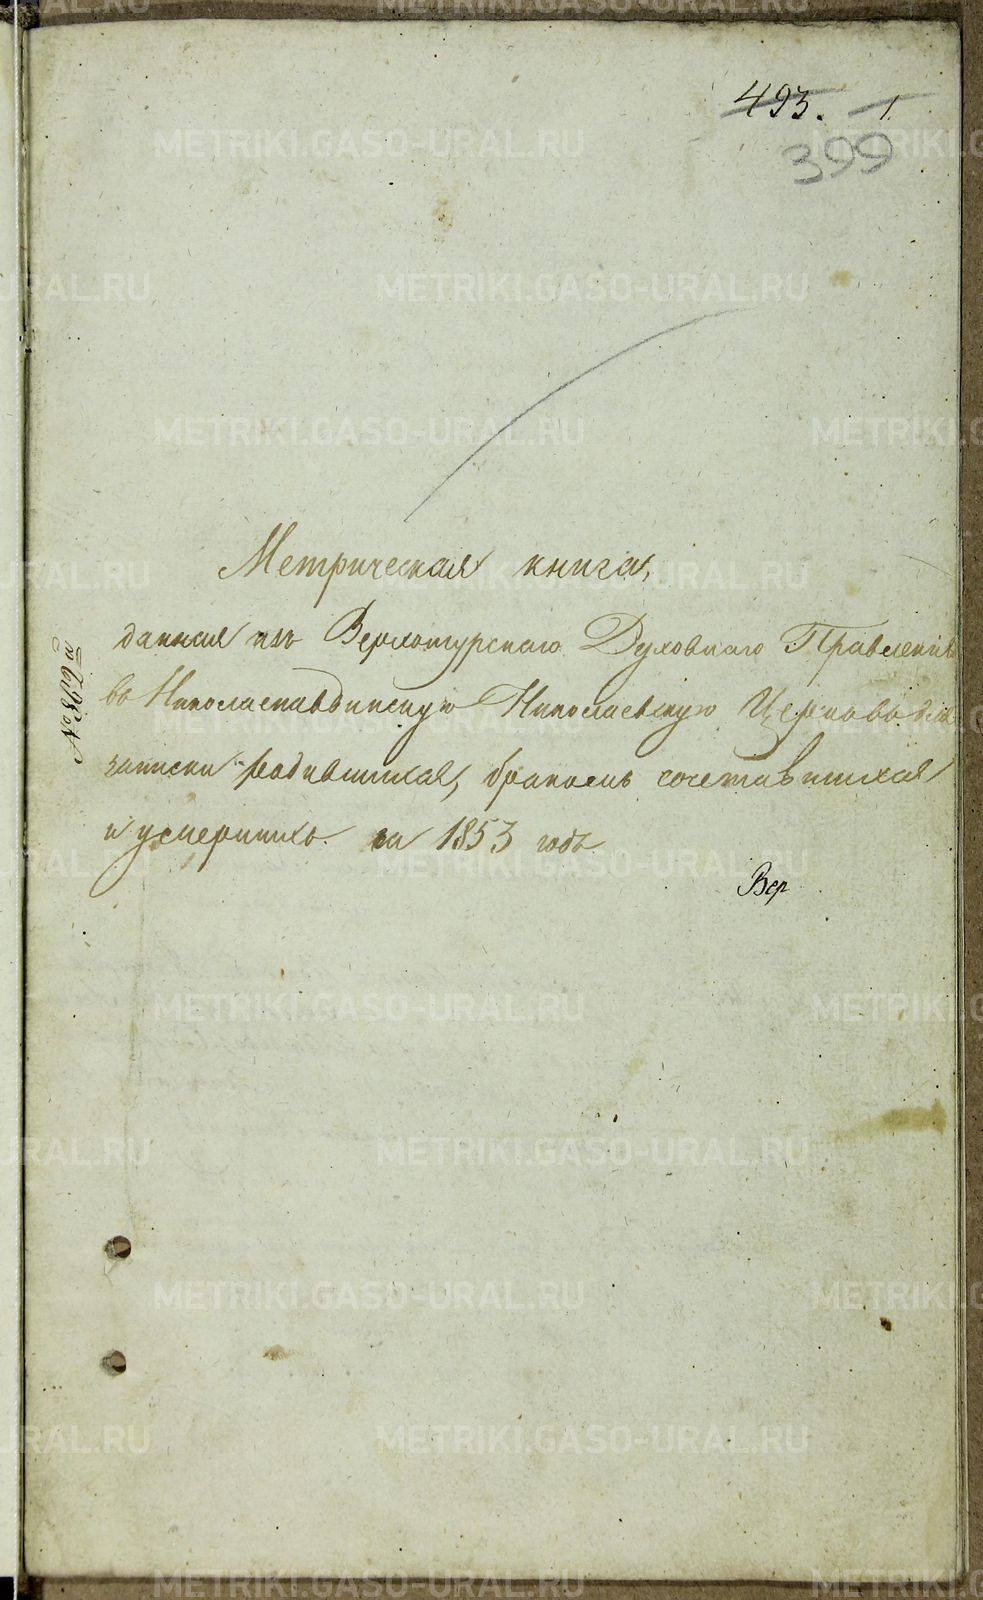 493. 1.
399
Метрическая книга,
данная изъ Верхотурскаго Духовнаго Правленія
въ Николаепавдинскую Николаевскую Церковь для
записки родившихся, бракомъ сочетавшихся
и умершихъ на 1853 годъ
Вер
№ 698й
METRIKI.GASO-URAL.RU